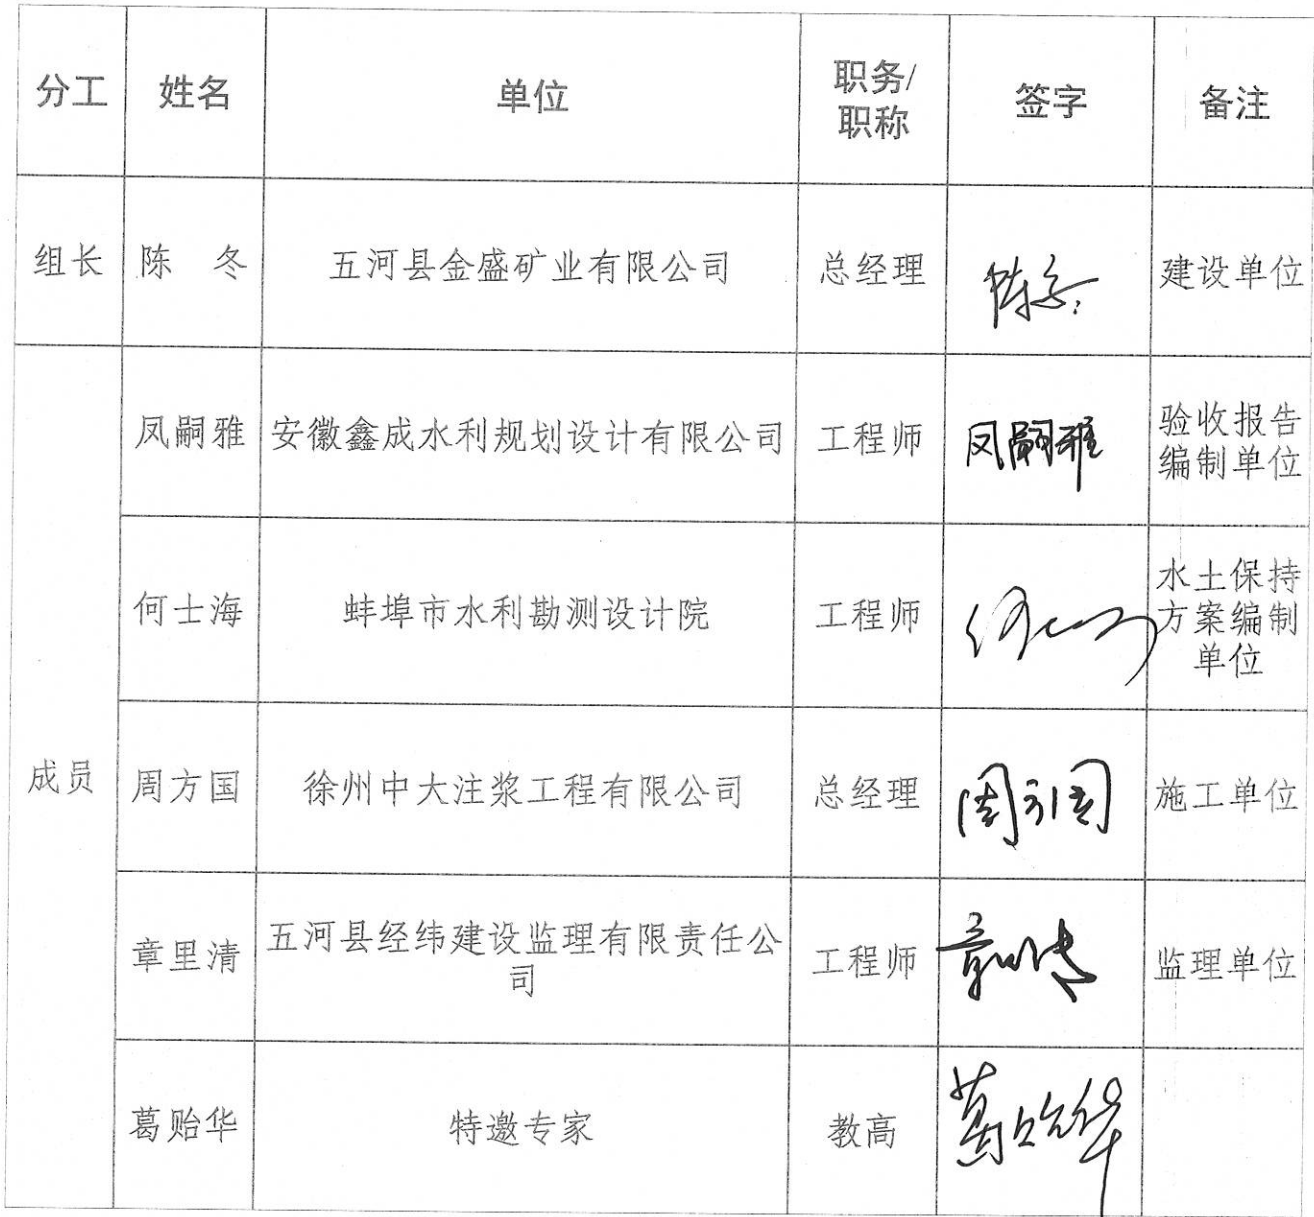 分工 姓名 单位 职务/职称 签字 备注
组长 陈 冬 五河县金盛矿业有限公司 总经理 陈冬 建设单位
成员
凤嗣雅 安徽鑫成水利规划设计有限公司 工程师 凤嗣雅 验收报告编制单位
何士海 蚌埠市水利勘测设计院 工程师 水土保持方案编制单位
周方国 徐州中大注浆工程有限公司 总经理 周方国 施工单位
章里清 五河县经纬建设监理有限责任公司 工程师 监理单位
葛贻华 特邀专家 教高 葛贻华